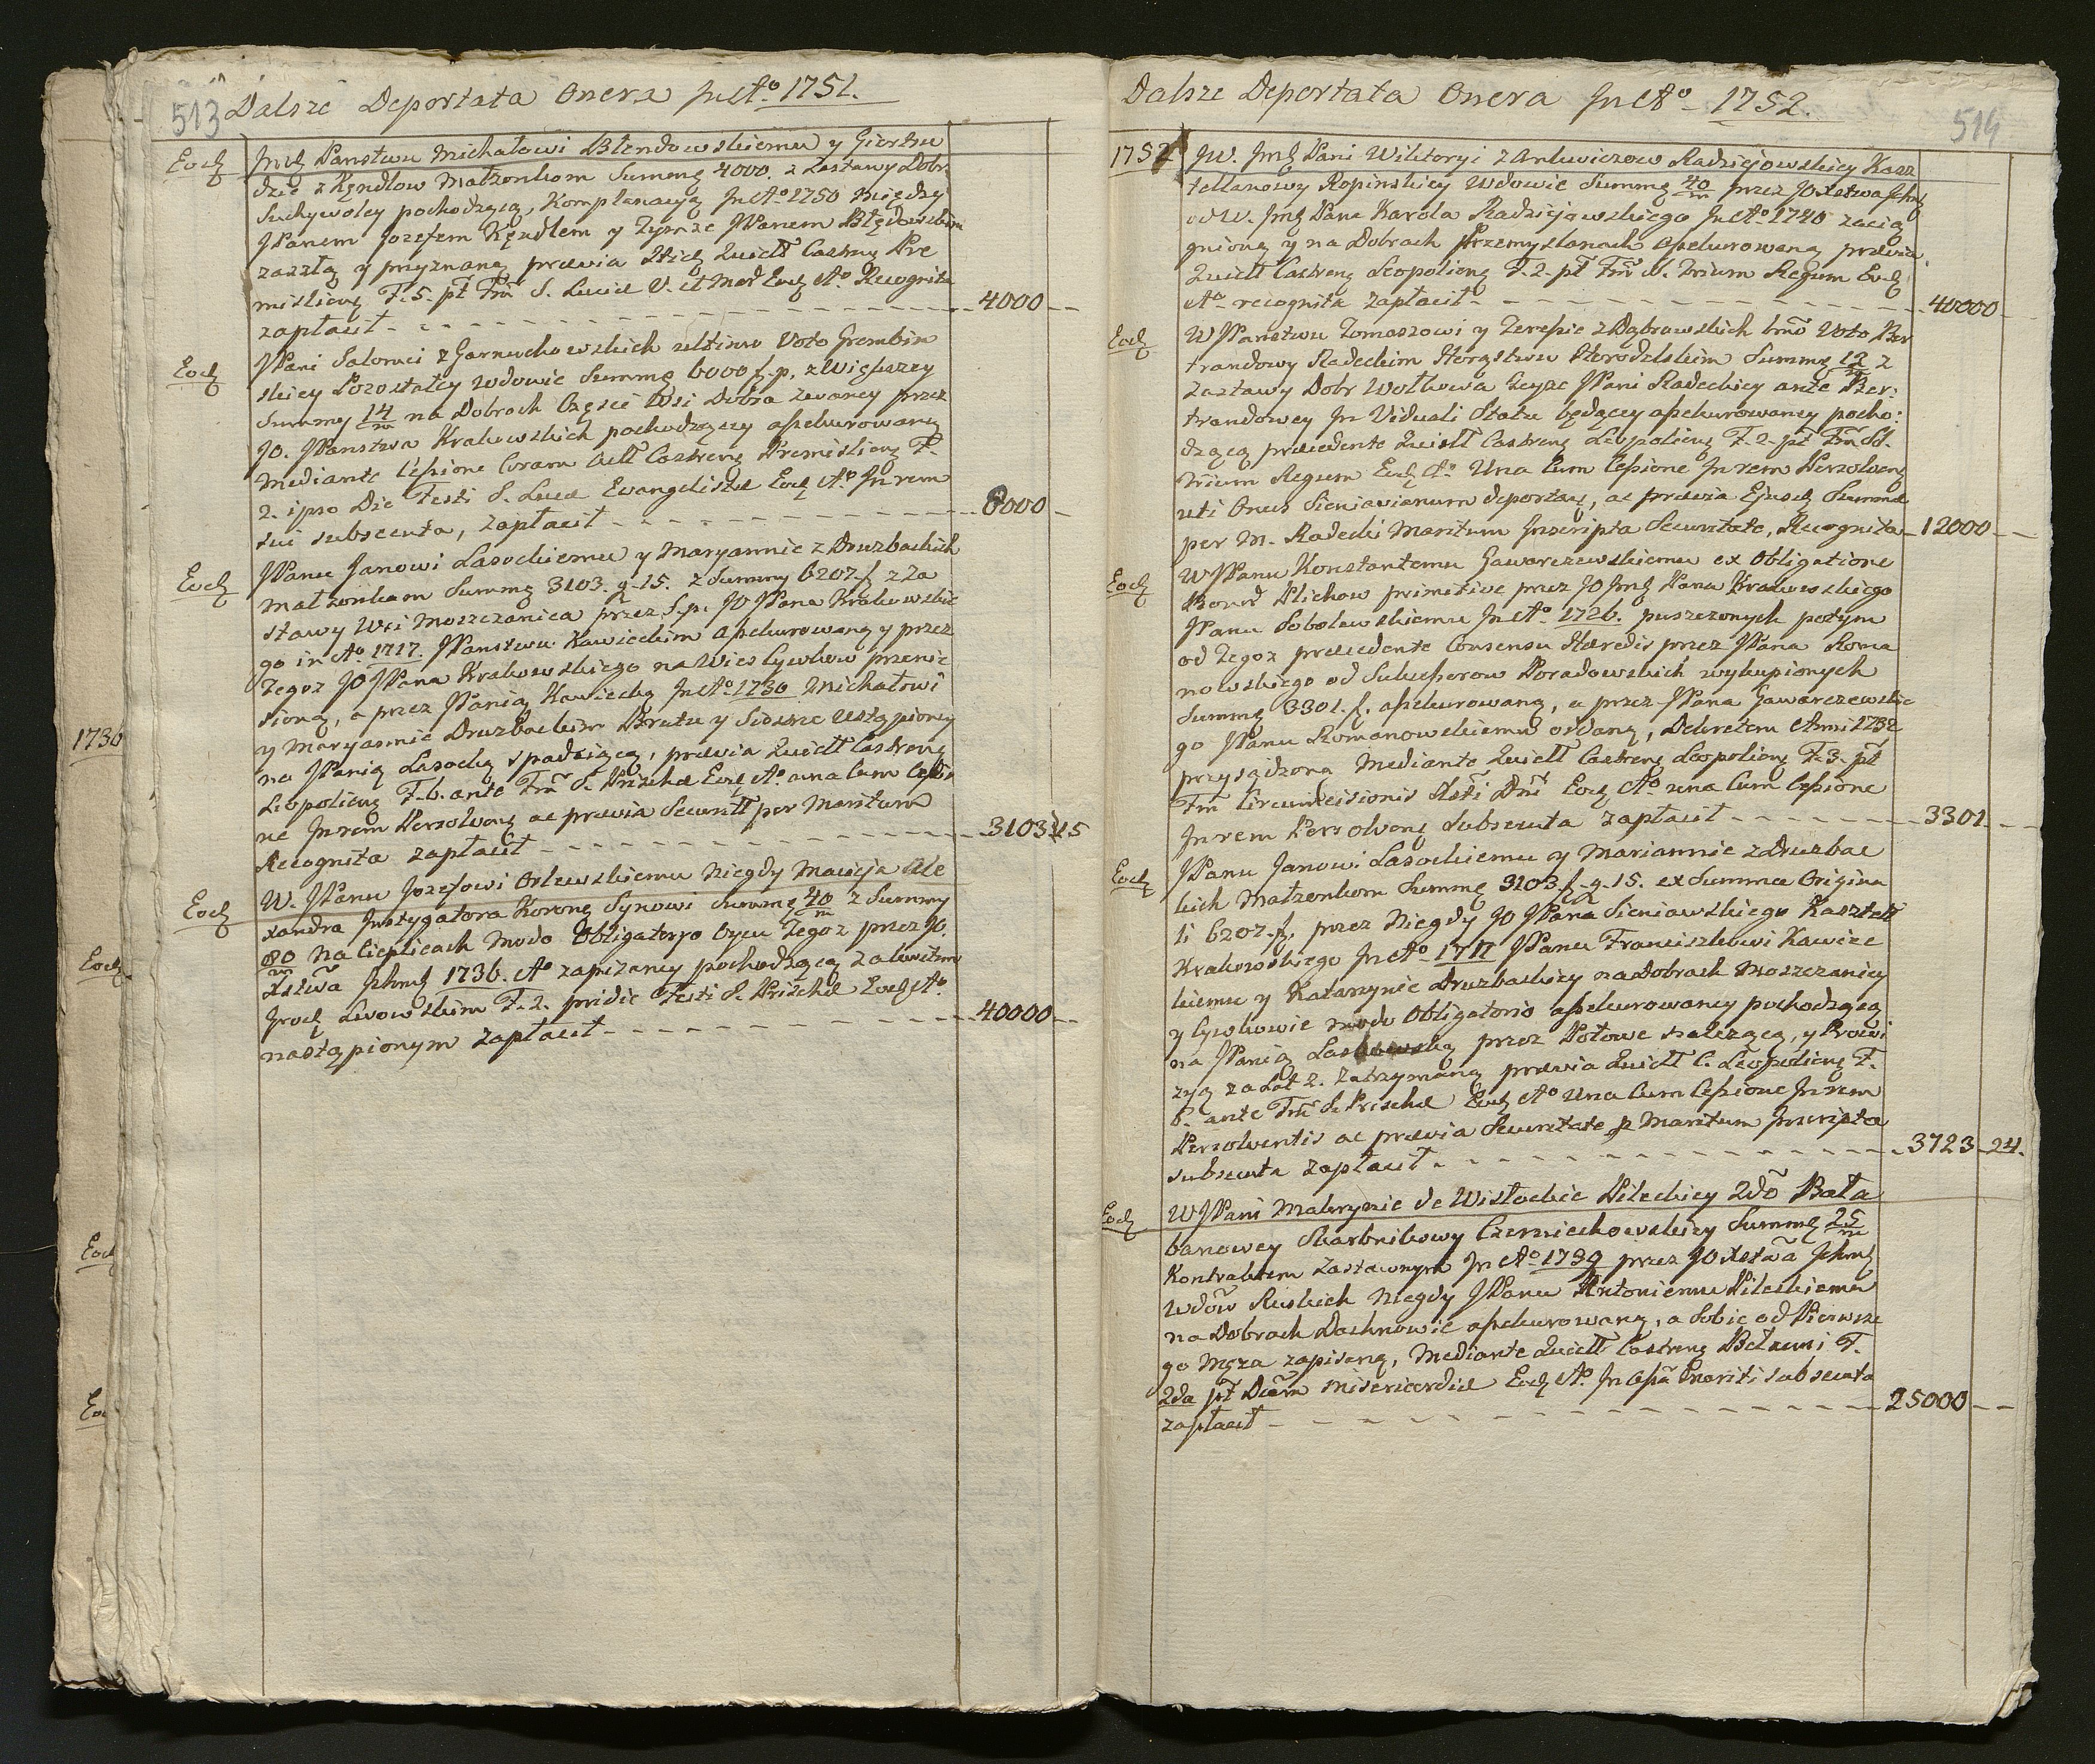 513 Dalsze Deportata Onera In Aº 1751.
Eod Imć Państwu Michałowi Błendowskiemu y Giertru
dzie z Kęndlow Małżonkom Summę 4000. z Zastawy Dobr
Suchywoley pochodzącą, Komplanacyą In Aº 1750 między
JPanem Jozefem Kęndlem y Tymże JPanem Błędowskim
zaszłą y przyznaną prævia Quiett Castreng Pre
mislieng F. 5. pt Fm S. Luciæ V. et Mar Eod Aº Recognita
zapłacił 4000
Eod JPani Salomei z Garnuchowskich ultimo Voto Grembin
skiey Pozostałey wdowie Summę 6000 f. p. z Większey
Summy 14/m na Dobrach Części Wsi Dobra zwaney przez
JO. JPanstwa Krakowskich pochodzącey assekurowaney
Mediante Cessione Coram Actt Castreng Premislieng F.
2. ipso Die Festi S. Lucæ Evangelistæ Eod Aº In rem
sui subsecuta, zapłacił 6000
Eod JPanu Janowi Lasockiemu y Maryannie z Druzbackich
Małżonkom Summę 3103. g. 15. z Summy 6207. f z Za
stawy Wsi Moszczanica przez S. p. JO JPana Krakowskie
go in Aº 1717. JPanstwu Kawieckim assekurowaną y przez
Tegoż JO JPana Krakowskiego na Wieś Cywkow przenie
sioną, a przez JPanią Kawiecką In Aº 1730 Michałowi
y Maryannie Druzbackim Bratu y Siostrze ustąpioney
na JPanią Lasocką spadaiącą, prævia Quiett Castreng
Leopolieng F. 6. ante Fm S. Priscæ Eod Aº una cum Cessio
ne In rem Persolveng ac prævia Securitt per Maritum
Recognita zapłacił 3103 15
Eod W. JPanu Jozefowi Orlewskiemu Niegdy Macieja Ale
xandra Instygatora Koronng Synowi Summę 40/m z Summy
80/m na Cieplicach Modo Obligatorjo Oycu Tegoż przez JO.
Xstwa Ichmć 1736. Aº zapisaney pochodzącą za kwitem
Grod Lwowskim F. 2. pridie Festi S. Priscæ Eod Aº
nastąpionym zapłacił 40000
1736
Eod
Eod
Eod
Dalsze Deportata Onera In Aº 1752.
514
1752 JW. Imć Pani Wiktoryi z Ankwiczow Radziejowskiey Kasz
tellanowy Ropinskiey wdowie Summę 40/m przez JO Xstwa Ichmć
od W. Imć Pana Karola Radziejowskiego In Aº 1740 zacią
gnioną y na Dobrach Przemyslanach assekurowaną prævia
Quiett Castreng Leopolieng F. 2. pt Fm S. Trium Regum Eod
Aº recognita zapłacił 40000
Eod WJPanstwu Tomaszowi y Teressie z Dąbrowskich 1mo Voto Ber
trandowy Radeckim Horodelskim Summę 12/m z
Zastawy Dobr Wołkowa Teyże JPani Radeckiey ante Ber:
trandowey In Viduali Statu będącey assekurowaney pocho:
dzącą præcedente Quiett Castreng Leopolieng F. 2. pt Fm SS.
Trium Regum Eod Aº Una Cum Cessione In rem Persolveng
uti Onus Sieniavianum deportang, ac prævia Ejusd Summæ
per M. Radecki Maritum Inscripta Securitate, Recognita 12000
Eod WJPanu Konstantemu Gawarczewskiemu ex Obligatione
Bonor Plichow primitive przez JO Imć Pana Krakowskiego
JPanu Sobolewskiemu In Aº 1726. puszczonych potym
od Tegoz præcedente Consensu Hæredis przez JPana Roma
nowskiego od Sukcessorow Poradowskich wykupionych
Summę 3301. f. assekurowaną, a przez JPana Gawarczewskie
go JPanu Romanowskiemu oddaną, Dekretem Anni 1732
przysądzoną Mediante Quiett Castreng Leopolieng F. 3. pt
Fm Circumcisionis Xsti Dni Eod Aº una Cum Cessione
In rem Persolveng Subsecuta zapłacił 3301
Eod JPanu Janowi Lasockiemu y Mariannie z Druzbac
kich Małzonkom Summę 3103. f. g. 15. ex Summa Origina
li 6207. f. przez Niegdy JO JPana Sieniawskiego Kasztell
Krakowskiego In Aº 1717 JPanu Franciszkowi Kawiec
kiemu y Katarzynie Druzbackiey na Dobrach Moszczanicy
y Cywkowie modo Obligatorio assekurowaney pochodzącą
na JPanią przez Połowe należącą, y Prowi
zyą za Lat 2. Zatrzymaną prævia Quiett C. Leopolieng F.
6. ante Fm S. Priscæ Eod Aº Una Cum Cessione In rem
Persolventis ac prævia Securitate p Maritum Inscripta
subsecuta zapłacił 3723 24.
Eod WJPani Makrynie de Wisłockie Pileckiey 2do Bała
banowey Skarbnikowy Czerniechowskiey Summę 25/m
Kontraktem Zastawnym In Aº 1739 przez JO Xstwa Ichmć
Wdow Ruskich Niegdy JPanu Antoniemu Pileckiemu
na Dobrach Dachnowie assekurowaną, a Sobie od Pierwsze
go Męza zapisaną, Mediante Quiett Castreng Belzeni F.
2da pt Dcam Misericordiæ Eod Aº In Cssa Mariti subsecuta
zapłacił 25000